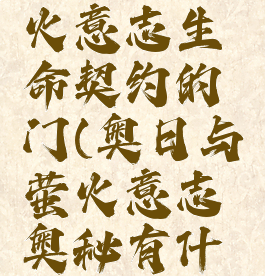 火意志生
命契约的
门(奥日与
萤火意志
奥秘有什